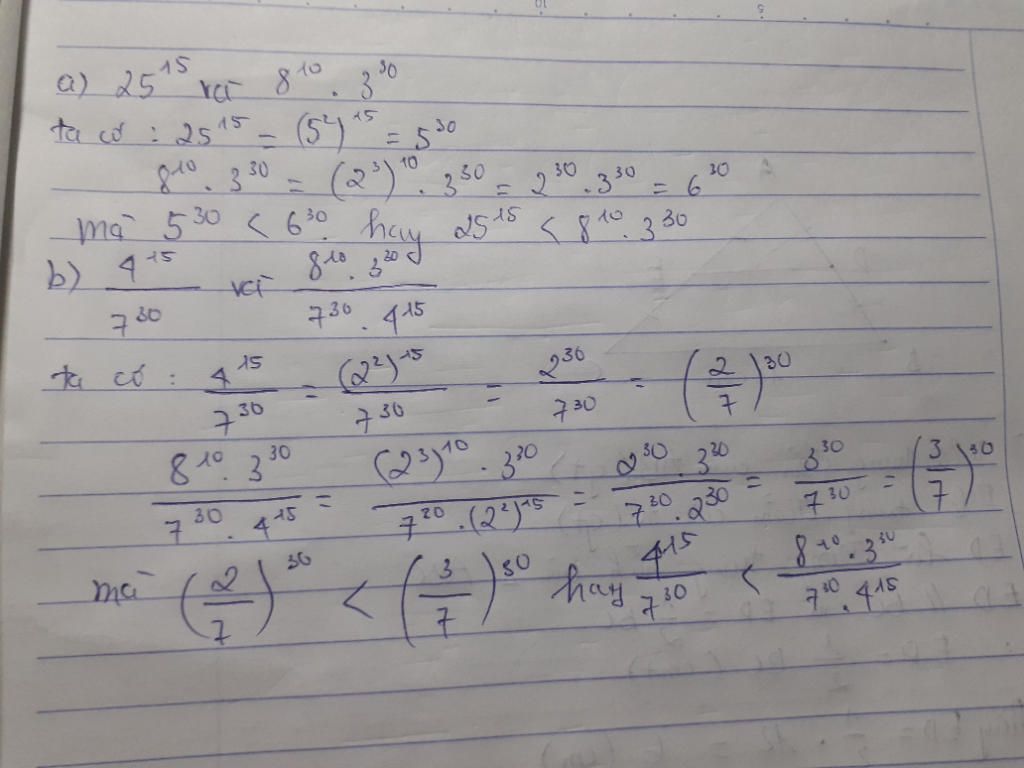 a) 25^15 và 8^10 . 3^30
ta có : 25^15 = (5^2)^15 = 5^30
8^10 . 3^30 = (2^3)^10 . 3^30 = 2^30 . 3^30 = 6^30
mà 5^30 < 6^30. hay 25^15 < 8^10 . 3^30
b) 4^15/7^30 và (8^10 . 3^30)/(7^30 . 4^15)
ta có : 4^15/7^30 = (2^2)^15/7^30 = 2^30/7^30 = (2/7)^30
(8^10 . 3^30)/(7^30 . 4^15) = ((2^3)^10 . 3^30)/(7^20 . (2^2)^15) = (2^30 . 3^30)/(7^30 . 2^30) = 3^30/7^30 = (3/7)^30
mà (2/7)^30 < (3/7)^30 hay 4^15/7^30 < (8^10 . 3^30)/(7^30 . 4^15)